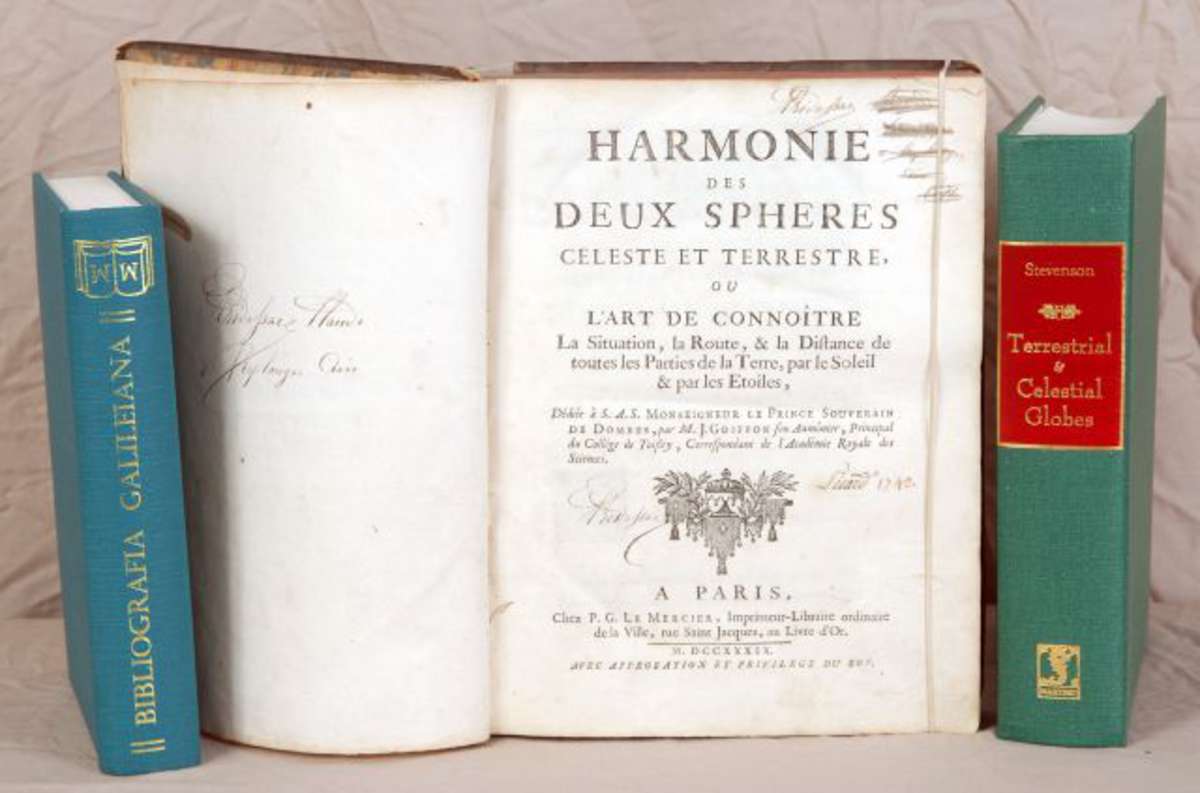 BIBLIOGRAFIA GALILEIANA
HARMONIE
DES
DEUX SPHERES
CELESTE ET TERRESTRE,
OU
L'ART DE CONNOÎTRE
La Situation, la Route, & la Distance de
toutes les Parties de la Terre, par le Soleil
& par les Etoiles,
Dédiée à S. A. S. MONSEIGNEUR LE PRINCE SOUVERAIN
DE DOMBES, par M. J. GOIFFON son Aumônier, Principal
du Collège de Toissey, Correspondant de l'Académie Royale des
Sciences.
1742.
A PARIS,
Chez P. G. LE MERCIER, Imprimeur-Libraire ordinaire
de la Ville, rue Saint Jacques, au Livre d'Or.
M. DCCXXXIX.
AVEC APPROBATION ET PRIVILEGE DU ROY.
Stevenson
Terrestrial
&
Celestial
Globes
MARTINO